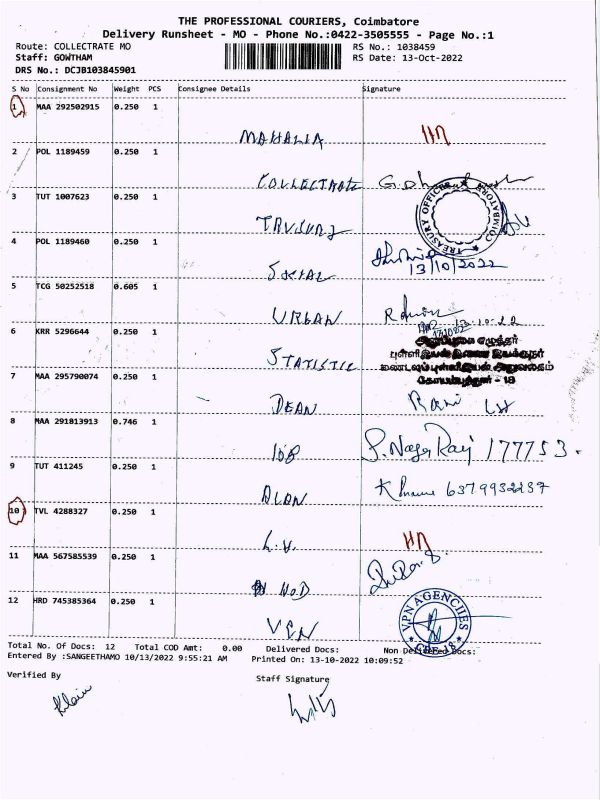 THE PROFESSIONAL COURIERS, Coimbatore
Delivery Runsheet - MO - Phone No.:0422-3505555 - Page No.:1
Route: COLLECTRATE MO
RS No.: 1038459
Staff: GOWTHAM
RS Date: 13-Oct-2022
DRS No.: DCJB103845901
S No Consignment No Weight PCS Consignee Details Signature
1 MAA 292502915 0.250 1
MAHALIA
2 POL 1189459 0.250 1
COLLECTRATE
3 TUT 1007623 0.250 1
TREASURY OFFICE COIMBATORE
4 POL 1189460 0.250 1
SOCIAL
13/10/2022
5 TCG 50252518 0.605 1
URBAN
6 KRR 5296644 0.250 1
STATISTIC
புள்ளியியல் இணை இயக்குநர்
மண்டலப் புள்ளியியல் அலுவலகம்
கோயம்புத்தூர் - 18
7 MAA 295790074 0.250 1
DEAN Rani
8 MAA 291813913 0.746 1
IOB S. Naga Raj 177753.
9 TUT 411245 0.250 1
ALAN 6379932237
10 TVL 4288327 0.250 1
11 MAA 567585539 0.250 1
HOD
12 HRD 745385364 0.250 1
VPN VPN AGENCIIES CBE-18
Total No. Of Docs: 12 Total COD Amt: 0.00 Delivered Docs: Non Delivered Docs:
Entered By :SANGEETHAMO 10/13/2022 9:55:21 AM Printed On: 13-10-2022 10:09:52
Verified By Staff Signature